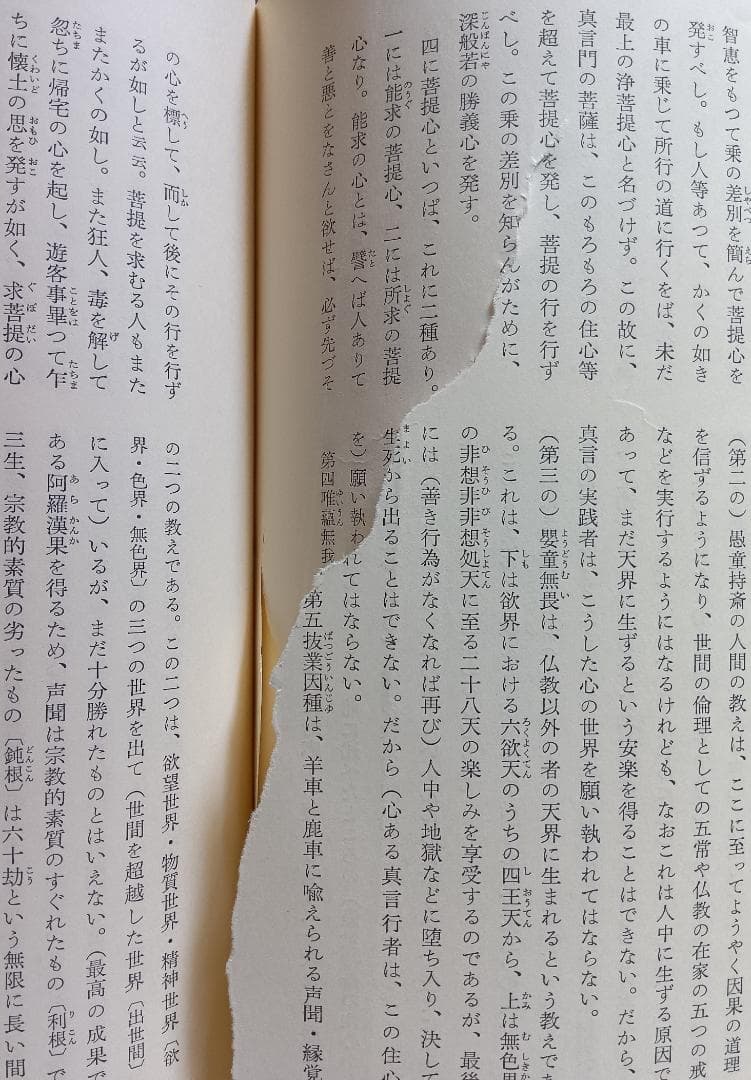 智恵をもつて乗の差別を簡んで菩提心を
発すべし。もし人等あつて、かくの如き
の車に乗じて所行の道に行くをば、未だ
最上の浄菩提心と名づけず。この故に、
真言門の菩薩は、このもろもろの住心等
を超えて菩提心を発し、菩提の行を行ず
べし。この乗の差別を知らんがために、
深般若の勝義心を発す。
四に菩提心といつぱ、これに二種あり。
一には能求の菩提心、二には所求の菩提
心なり。能求の心とは、譬へば人ありて
善と悪とをなさんと欲せば、必ず先づそ
（第二の）愚童持斎の人間の教えは、ここに至ってようやく因果の道理
を信ずるようになり、世間の倫理としての五常や仏教の在家の五つの戒
などを実行するようにはなるけれども、なおこれは人中に生ずる原因で
あって、まだ天界に生ずるという安楽を得ることはできない。だから、
真言の実践者は、こうした心の世界を願い執われてはならない。
（第三の）嬰童無畏は、仏教以外の者の天界に生まれるという教えであ
る。これは、下は欲界における六欲天のうちの四王天から、上は無色界
の非想非非想処天に至る二十八天の楽しみを享受するのであるが、最後
には（善き行為がなくなれば再び）人中や地獄などに堕ち入り、決して
生死から出ることはできない。だから（心ある真言行者は、この住心
を）願い執われてはならない。
第四唯蘊無我 第五抜業因種は、羊車と鹿車に喩えられる声聞・縁覚
の心を標して、而して後にその行を行ず
るが如しと云云。菩提を求むる人もまた
またかくの如し。また狂人、毒を解して
忽ちに帰宅の心を起し、遊客事畢つて乍
ちに懐土の思を発すが如く、求菩提の心
の二つの教えである。この二つは、欲望世界・物質世界・精神世界〔欲
界・色界・無色界〕の三つの世界を出て（世間を超越した世界〔出世間〕
に入って）いるが、まだ十分勝れたものとはいえない。（最高の成果で
ある阿羅漢果を得るため、声聞は宗教的素質のすぐれたもの〔利根〕で
三生、宗教的素質の劣ったもの〔鈍根〕は六十劫という無限に長い間